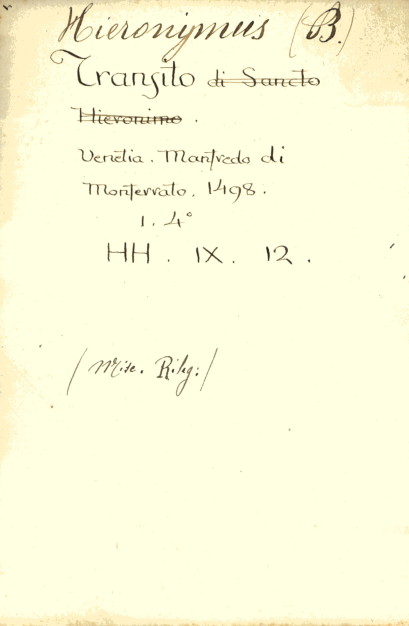 Hieronymus (B.)
Transito di Sancto
Hieronimo.
Venetia. Manfredo di
Monferrato. 1498.
1. 4°
HH. IX. 12.
(Misc. Rileg.)